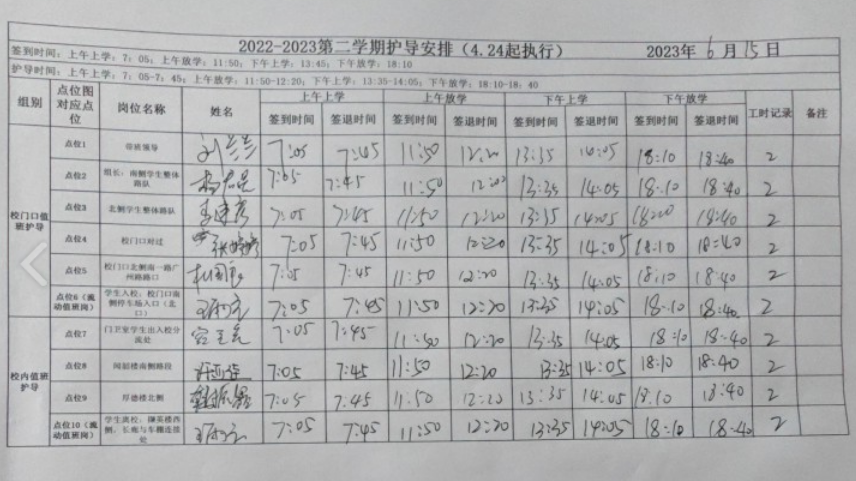 2022-2023第二学期护导安排（4.24起执行） 2023年 6 月 15 日
签到时间：上午上学：7：05；上午放学：11:50；下午上学：13:45；下午放学：18:10
护导时间：上午上学：7：05-7：45；上午放学：11:50-12:20；下午上学：13:35-14:05；下午放学：18:10-18：40
组别 点位图对应点位 岗位名称 姓名 上午上学 上午放学 下午上学 下午放学 工时记录 备注
签到时间 签退时间 签到时间 签退时间 签到时间 签退时间 签到时间 签退时间
校门口值班护导
点位1 带班领导 7:05 7:45 11:50 12:20 13:35 14:05 18:10 18:40 2
点位2 组长：南侧学生整体路队 7:05 7:45 11:50 12:20 13:35 14:05 18:10 18:40 2
点位3 北侧学生整体路队 7:05 7:45 11:50 12:20 13:35 14:05 18:40 2
点位4 校门口对过 7:05 7:45 11:50 12:20 13:35 14:05 18:10 18:40 2
点位5 校门口北侧南一路广州路路口 7:05 7:45 11:50 12:20 13:35 14:05 18:10 18:40 2
点位6（流动值班岗） 学生入校：校门口南侧停车场入口（北口） 7:05 7:45 11:50 12:20 13:35 14:05 18:10 18:40 2
校内值班护导
点位7 门卫室学生出入校分流处 7:05 7:45 11:50 12:20 13:35 14:05 18:10 18:40 2
点位8 南侧路段 7:05 7:45 11:50 12:20 13:35 14:05 18:10 18:40 2
点位9 厚德楼北侧 7:05 7:45 11:50 12:20 13:35 14:05 18:10 18:40 2
点位10（流动值班岗） 学生离校：楼西侧，长廊与车棚连接处 7:05 7:45 11:50 12:20 13:35 14:05 18:10 18:40 2